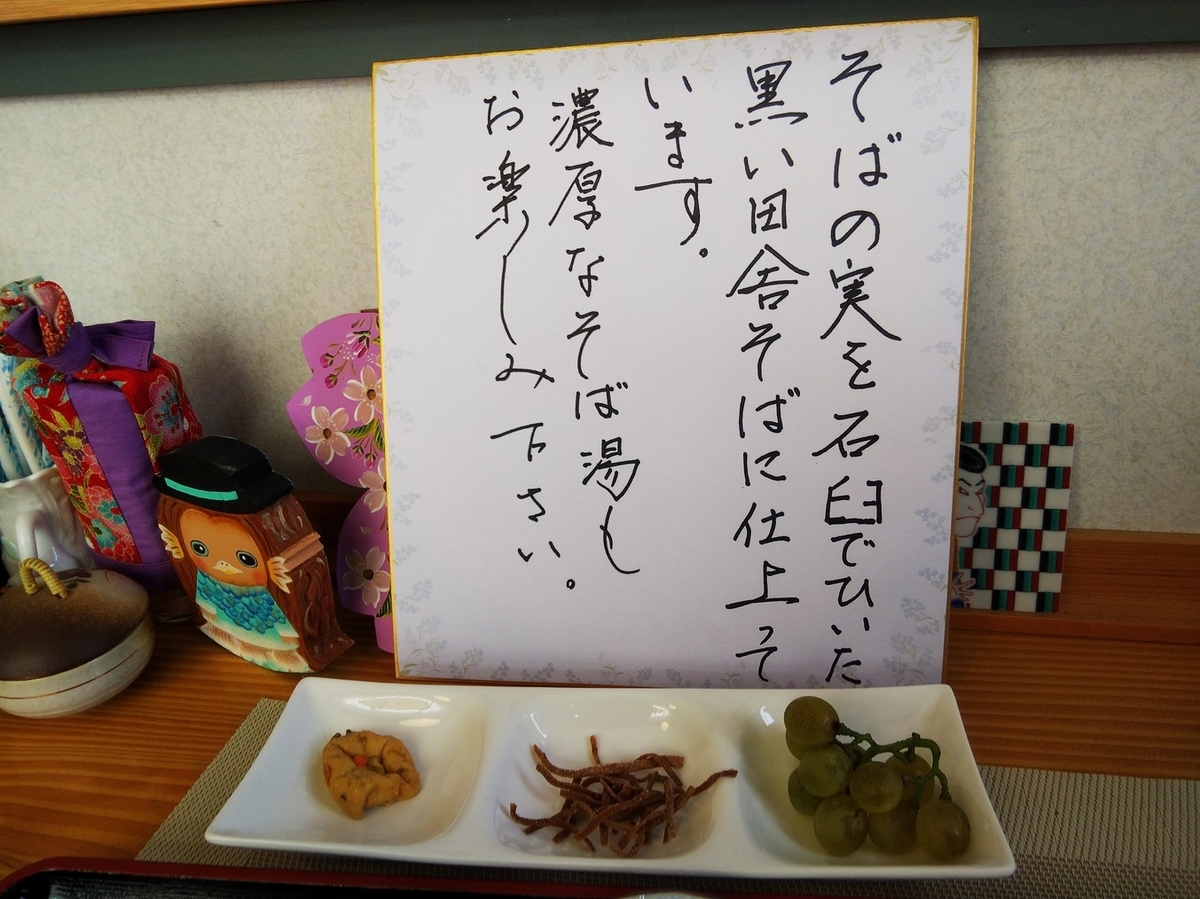 そばの実を石臼でひいた
黒い田舎そばに仕上って
います。
濃厚なそば湯も
お楽しみ下さい。